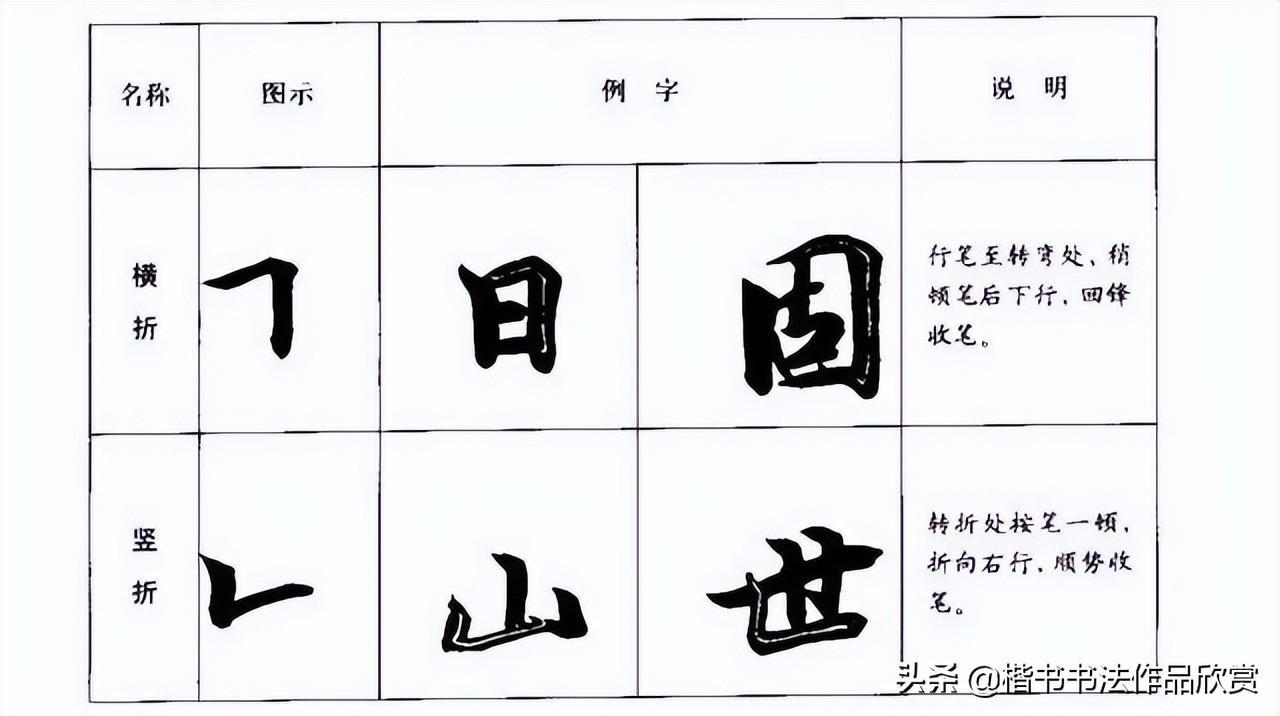 名称 图示 例字 说明
横折 日 固
行笔至转弯处、稍
顿笔后下行,回锋
收笔。
竖折 山 世
转折处按笔一顿,
折向右行,顺势收
笔。
头条 @楷书书法作品欣赏